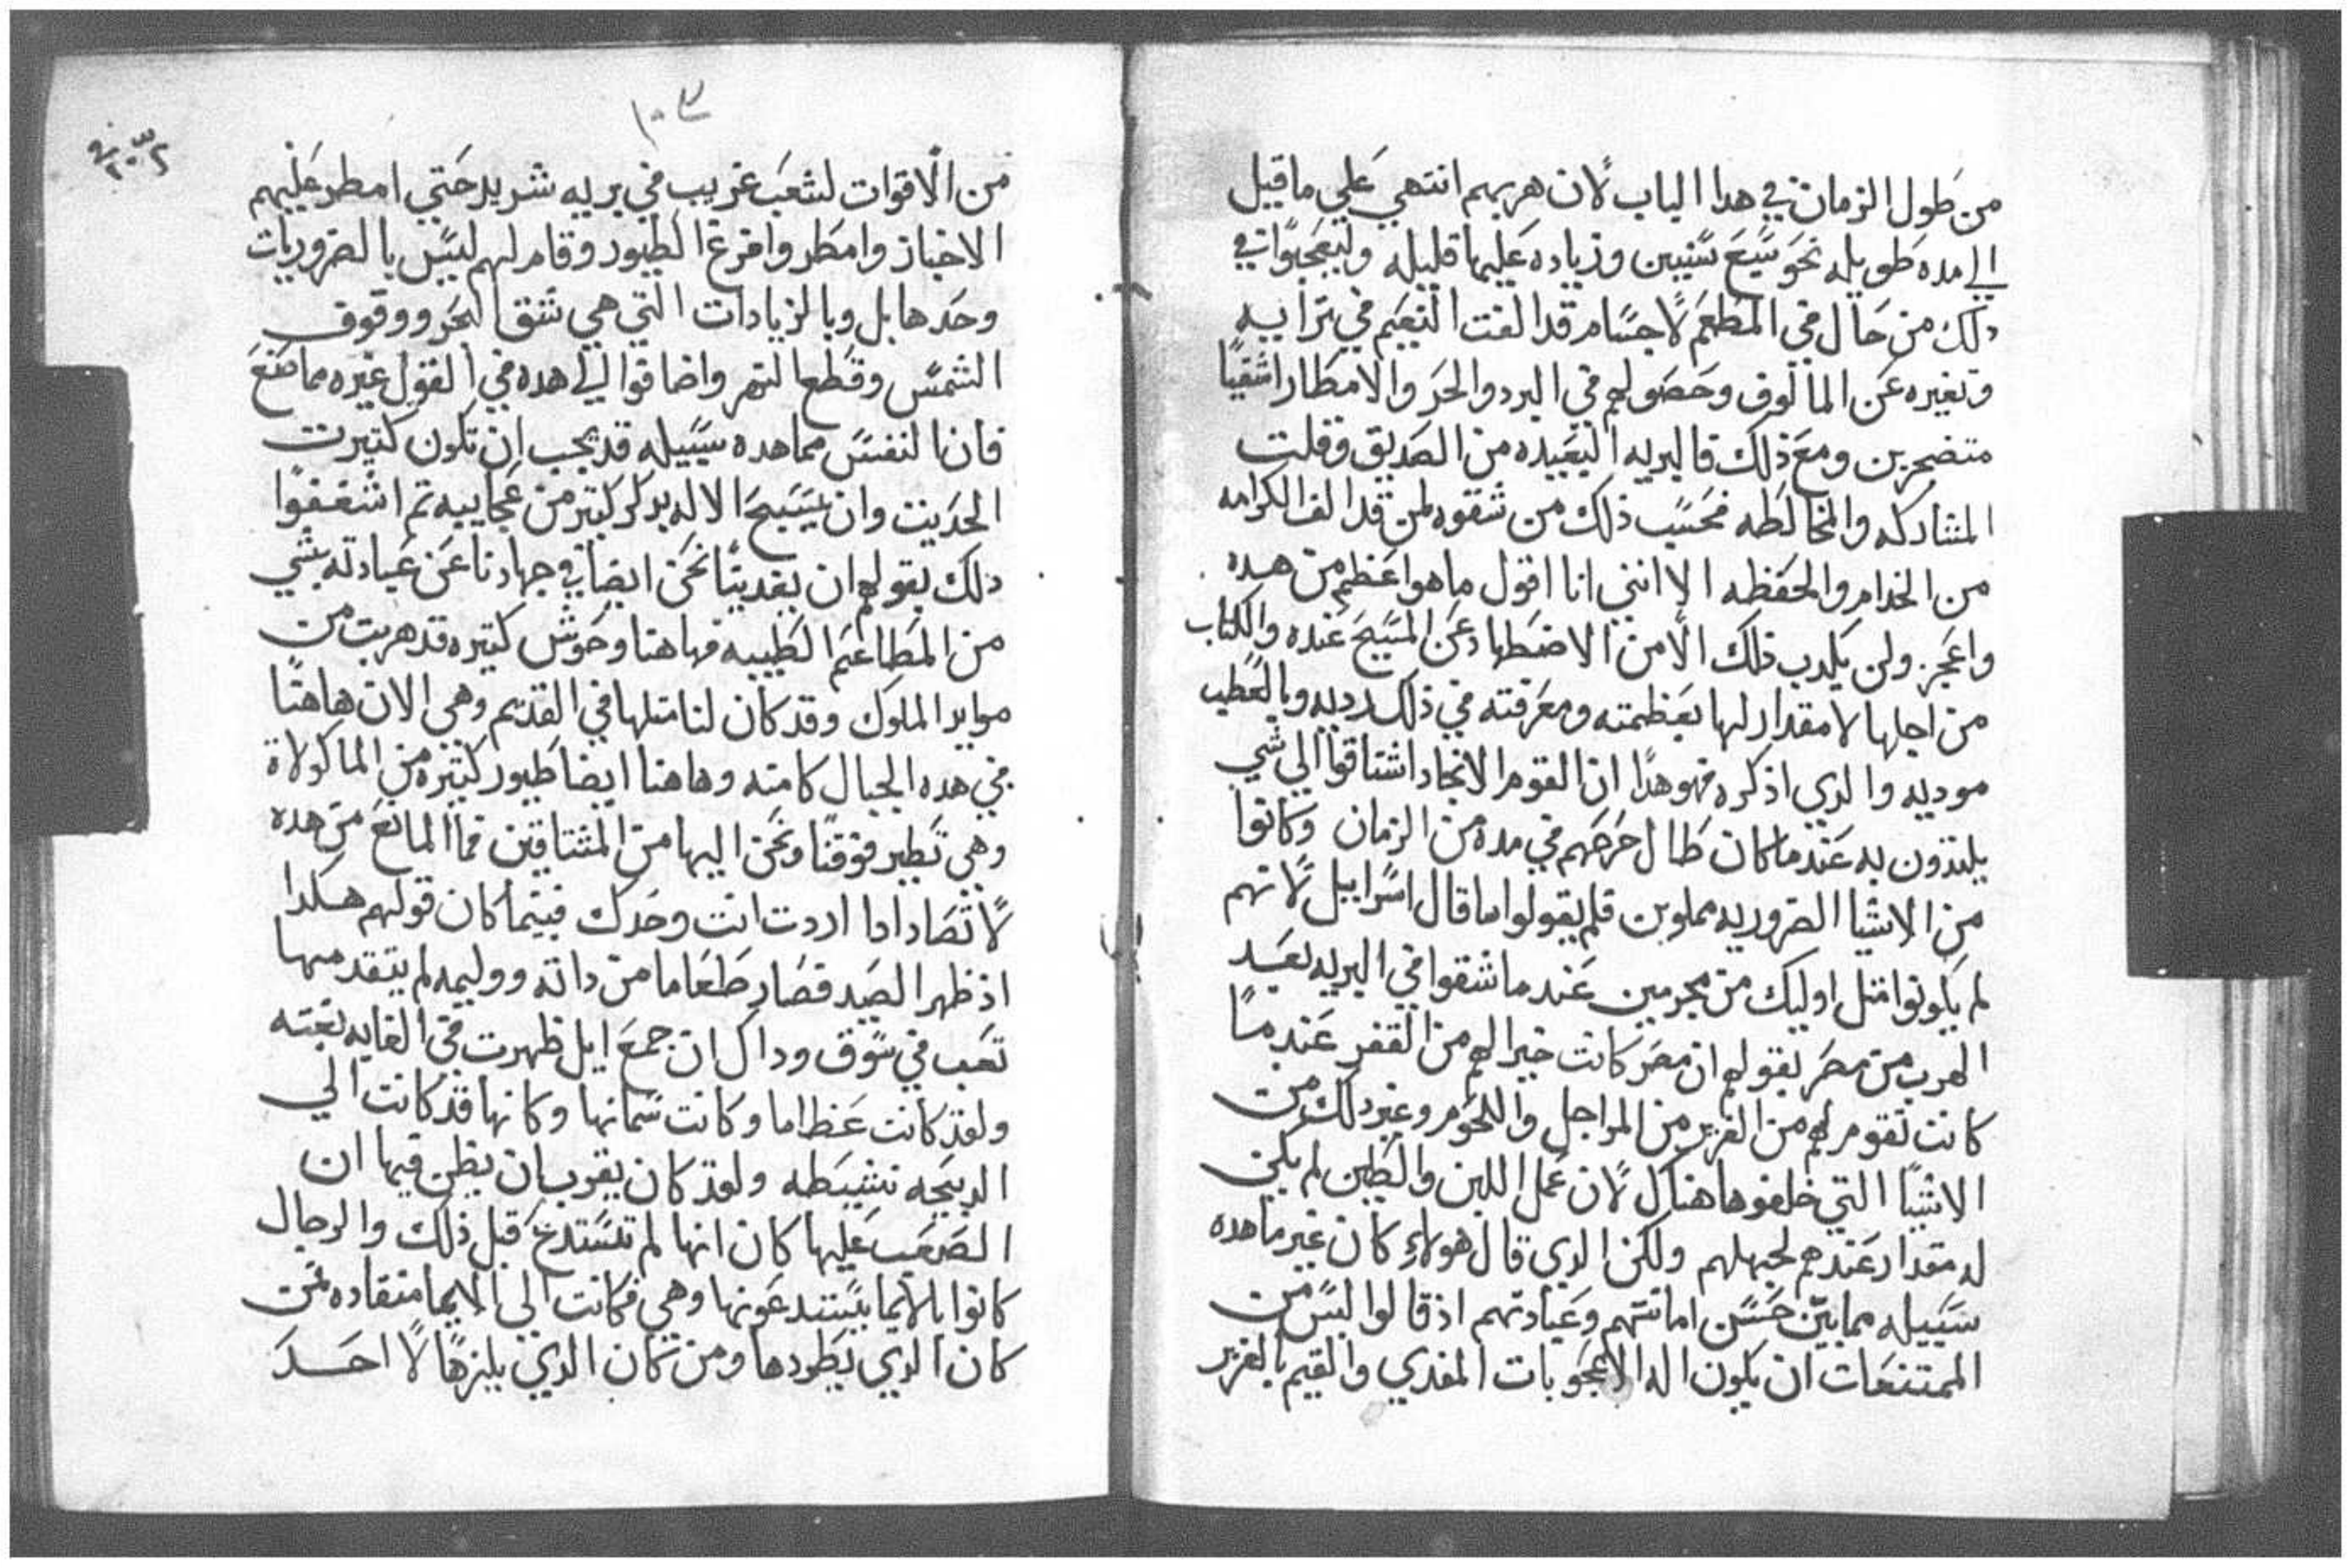 من طول الزمان في هدا الباب لان هربهم انتهي علي ما قيل
الي مده طويله نحو سبع سنيين وزياده عليها قليله وليعجبوا في
دلك من حال في المطعم لاجسام قد الفت النعيم في ترابيه
وتغيره عن المالوف وحصولهم في البرد والحر والامطار اشقيا
متضجرين ومع ذلك فالبريه البعيده من الصديق وقلت
المشاركه والمخالطه فحسب ذلك من شقوه لمن قد الف الكرامه
من الخدام والحفظه الا انني انا اقول ما هو اعظم من هده
واعجز ولن يكدب ذلك الا من الاضطهاد عن المسيح عنده والكتاب
من اجلها لا مقدار لها بعظمته ومعرفته في ذلك رديه وبالعطب
موديه والدي اذكره فهو هدا ان القوم الانجاد اشتاقوا الي شي
يلتذون به عندما كان طال حرصهم في مده من الزمان وكانوا
من الاشيا الضروريه مملوين فلم يقولوا ما قال اسراييل لانهم
لم يكونوا متل اوليك من مجرمين عندما شقوا في البريه بعد
الهرب من مصر بقولهم ان مصر كانت خيرا لهم من القفر عندما
كانت تقوم لهم من الغزير من المراجل واللحوم وغير دلك من
الاشيا التي خلفوها هناك لان عمل اللبن والطين لم يكن
له مقدار عندهم لجهلهم ولكن الدي قال هولاء كان غير ما هده
سبيله مما بين حسن امانتهم وعبادتهم اذ قالوا ليس من
الممتنعات ان يكون اله الاعجوبات المغدي والقيم بالغزير
١٠٣
من الاقوات لشعب غريب في بريه شريد حتي امطر عليهم
الاخباز وامطر وافرغ الطيور وقام لهم ليس بالضروريات
وحدها بل وبالزيادات التي هي شق البحر ووقوف
الشمس وقطع النهر واضافوا الي هده في القول غيره مما صنع
فان النفس مما هده سبيله قد يجب ان تكون كتيرت
الحديت وان يسبح الاله بدكر كتير من عجايبه تم اشغفوا
دلك بقولهم ان يغديتا نحن ايضا في جهادنا عن عبادته بشي
من المطاعم الطيبه فهاهنا وحوش كتيره قد هربت من
موايد الملوك وقد كان لنا متلها في القديم وهي الان هاهنا
في هده الجبال كامنه وهاهنا ايضا طيور كتيره من الماكولاة
وهي تطير فوقنا ونحن اليها من المشتاقين فما المانع من هده
لا تصاد ادا اردت انت وحدك فبينما كان قولهم هكدا
اذ ظهر الصيد فصار طعاما من داته ووليمه لم يتقدمها
تعب في سوق وداك ان جمع ايل ظهرت في الغابه بغته
ولقد كانت عظاما وكانت سمانها وكانها قد كانت الي
الدبيحه نشيطه ولقد كان يقرب ان يظن فيها ان
الصعب عليها كان انها لم تستدع قبل ذلك والرجال
كانوا بالايما يستدعونها وهي فكانت الي الايما منقاده فمن
كان الدي يطردها ومن كان الدي يلزها لا احد